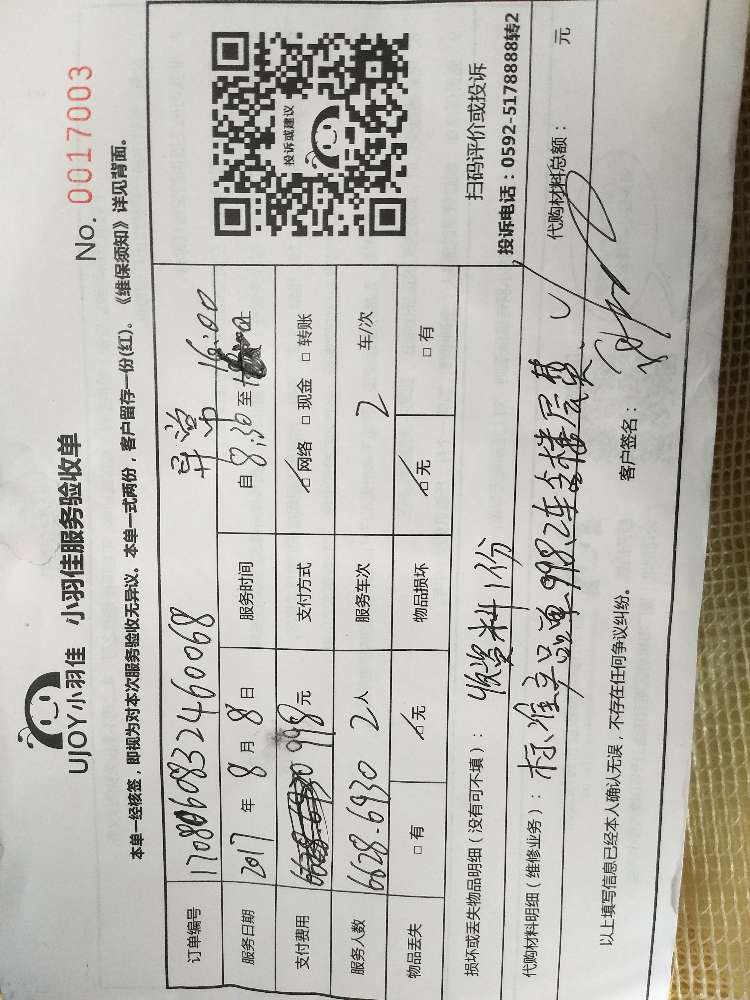 UJOY小羽佳 小羽佳服务验收单
No. 0017003
本单一经核签，即视为对本次服务验收无异议。本单一式两份，客户留存一份(红)。《维保须知》详见背面。
订单编号 1708060832460068 异常
服务日期 2017 年 8 月 8 日 服务时间 自 8:30 至 16:00 止
支付费用 998 元 支付方式 ☑网络 □现金 □转账
服务人数 6628-6930 2人 服务车次 2 车/次
物品丢失 □有 ☑无 物品损坏 ☑无 □有
投诉或建议
扫码评价或投诉
投诉电话：0592-5178888转2
损坏或丢失物品明细（没有可不填）： 收资料1份
代购材料明细（维修业务）： 标准产品单998.2车含楼层费. 代购材料总额： 元
以上填写信息已经本人确认无误，不存在任何争议纠纷。 客户签名：